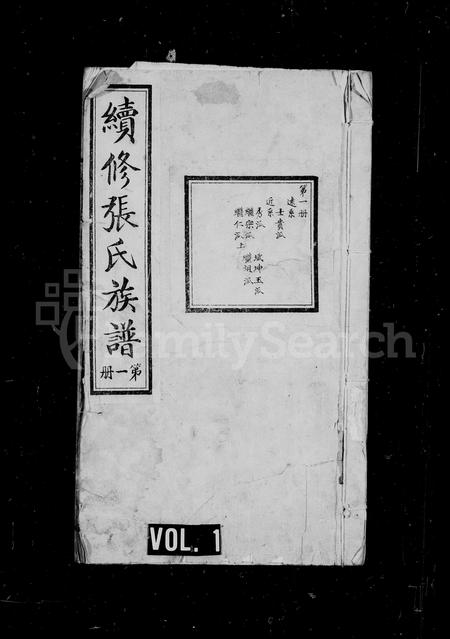 續修張氏族譜
第一册
第一册
遠系
士貴派
近系
秀派 斌坤玉派
繼宗派 繼祖派
繼仁派上
VOL. 1
FamilySearch